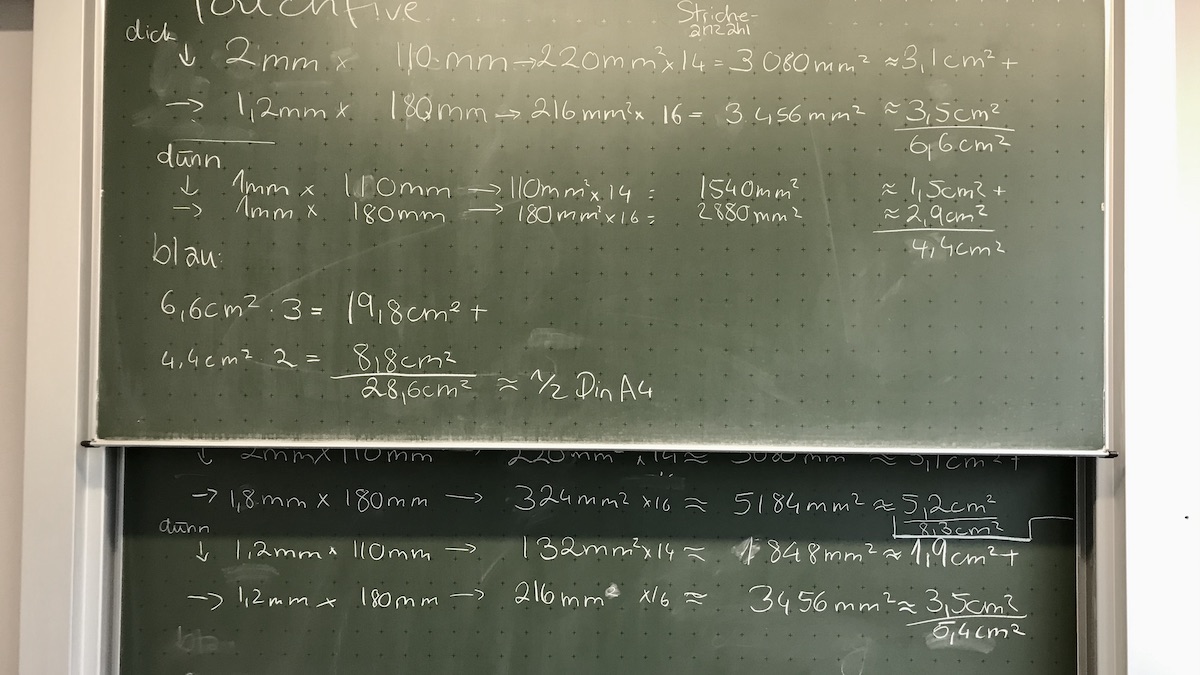 TouchFive
Striche-
anzahl
dick
↓ 2mm x 110mm → 220mm² x 14 = 3080mm² ≈ 3,1cm² +
→ 1,2mm x 180mm → 216mm² x 16 = 3.456mm² ≈ 3,5cm²
6,6cm²
dünn
↓ 1mm x 110mm → 110mm² x 14 = 1540mm² ≈ 1,5cm² +
→ 1mm x 180mm → 180mm² x 16 = 2880mm² ≈ 2,9cm²
4,4cm²
blau:
6,6cm² · 3 = 19,8cm² +
4,4cm² 2 = 8,8cm²
28,6cm² ≈ 1/2 Din A4
↓ 2mm x 110mm → 220mm² x 14 ≈ 3080mm² ≈ 3,1cm² +
→ 1,8mm x 180mm → 324mm² x16 ≈ 5184mm² ≈ 5,2cm²
8,3cm²
dünn
↓ 1,2mm x 110mm → 132mm² x 14 ≈ 1848mm² ≈ 1,9cm² +
→ 1,2mm x 180mm → 216mm² x16 ≈ 3456mm² ≈ 3,5cm²
5,4cm²